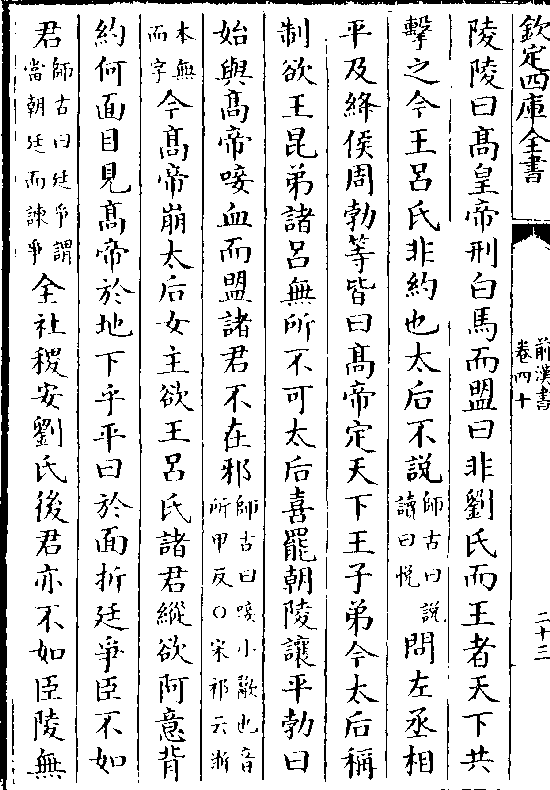 欽定四庫全書
前漢書
卷四十
二十三
陵陵曰髙皇帝刑白馬而盟曰非劉氏而王者天下共
擊之今王吕氏非約也太后不說師古曰說讀曰悅問左丞相
平及絳侯周勃等皆曰髙帝定天下王子弟今太后稱
制欲王昆弟諸吕無所不可太后喜罷朝陵讓平勃曰
始與髙帝唼血而盟諸君不在邪師古曰唼小歠也音所甲反○宋祁云浙
本無而字今髙帝崩太后女主欲王吕氏諸君縱欲阿意背
約何面目見髙帝於地下乎平曰於面折廷爭臣不如
君師古曰廷爭謂當朝廷而諫爭全社稷安劉氏後君亦不如臣陵無